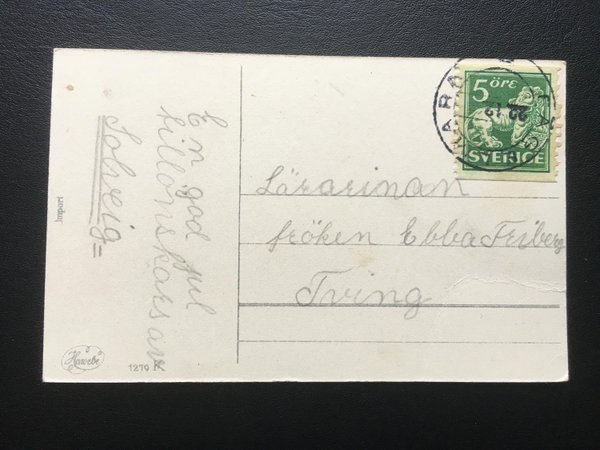 En god jul
tillönskars av
Solveig=
Import
Hawebe
1270 F
5 ÖRE
SVERIGE
22 12
Lärarinan
fröken Ebba Friberg
Tving